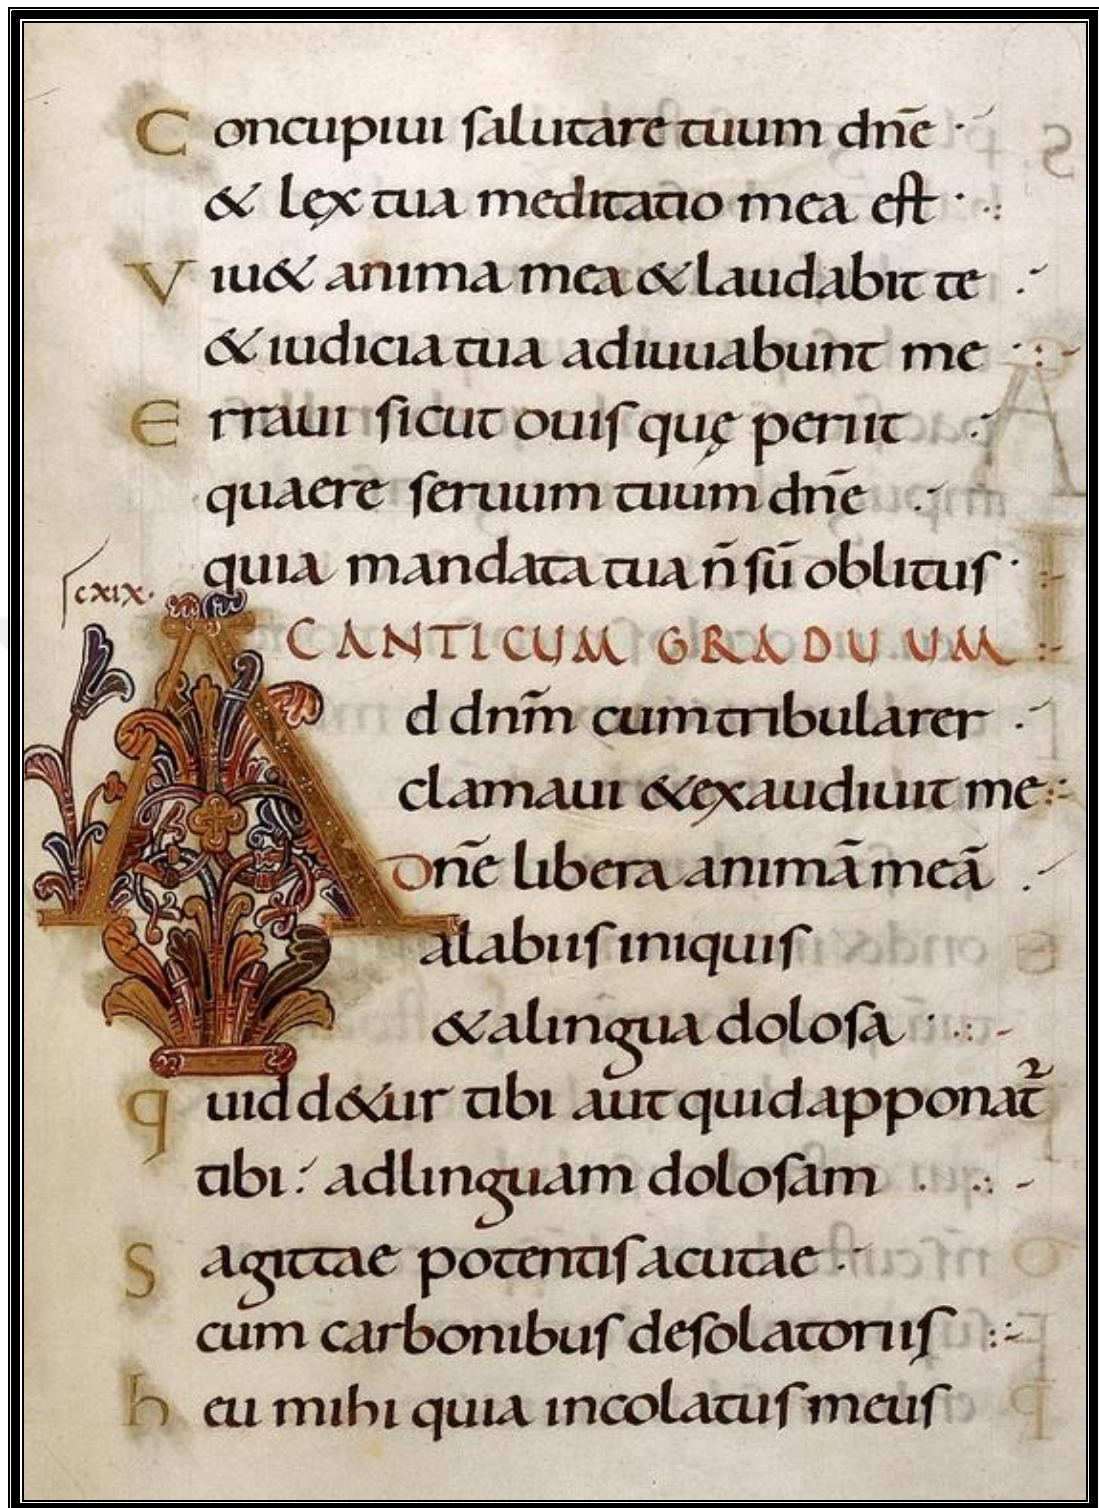 Concupiui salutare tuum dnē
& lęx tua meditatio mea est
Viu& anima mea & laudabit te
& iudicia tua adiuuabunt me
Erraui sicut ouis quę periit
quaere seruum tuum dnē
quia mandata tua n̄ sū oblitus
cxix.
CANTICUM GRADUUM
Ad dnm̄ cum tribularer
clamaui & exaudiuit me
Dnē libera animā meā
alabiis iniquis
& alingua dolosa
quid d&ur tibi aut quid apponat̄
tibi ad linguam dolosam
Sagittae potentis acutae
cum carbonibus desolatoriis
heu mihi quia incolatus meus